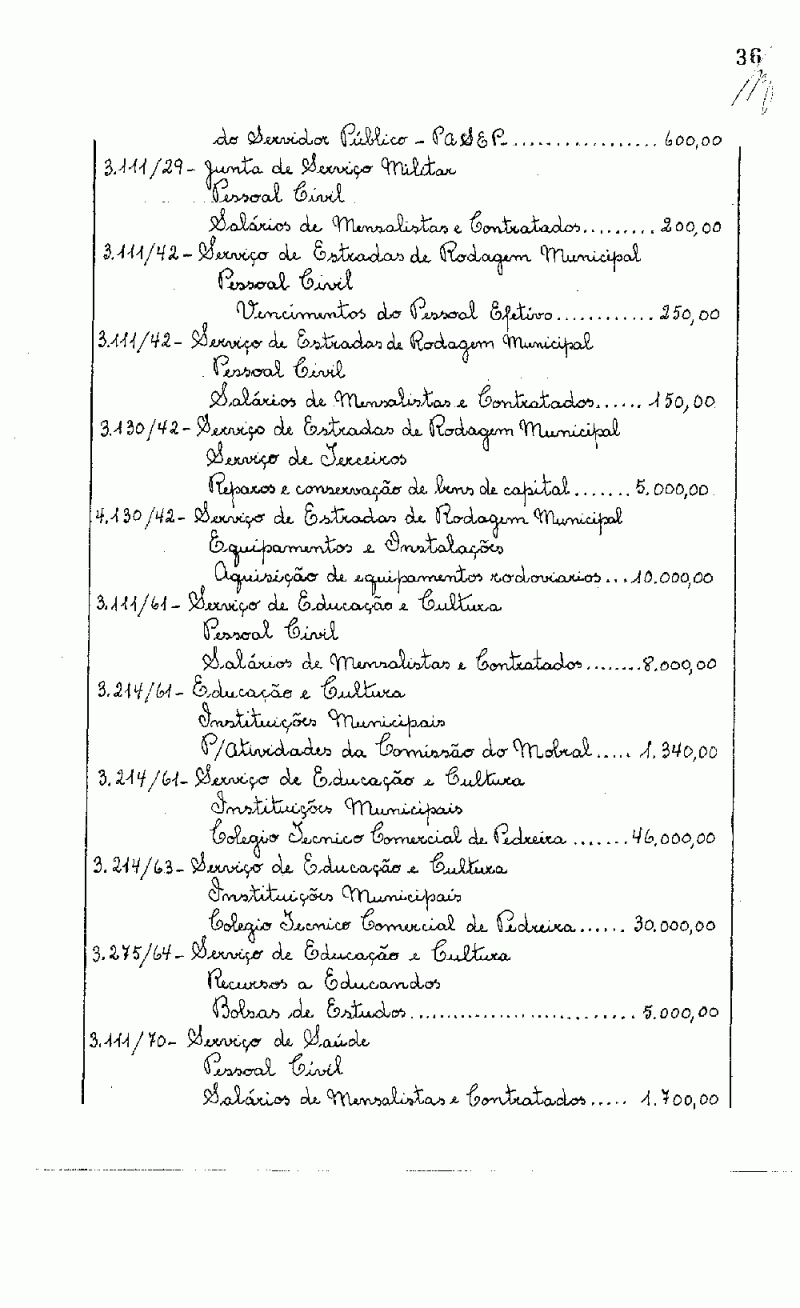 36
do Servidor Público - PASEP................. 600,00
3.111/29 - Junta de Serviço Militar
Pessoal Civil
Salários de Mensalistas e Contratados......... 200,00
3.111/42 - Serviço de Estradas de Rodagem Municipal
Pessoal Civil
Vencimentos do Pessoal Efetivo............ 250,00
3.111/42 - Serviço de Estradas de Rodagem Municipal
Pessoal Civil
Salários de Mensalistas e Contratados...... 150,00
3.130/42 - Serviço de Estradas de Rodagem Municipal
Serviço de Terceiros
Reparos e conservação de bens de capital....... 5.000,00
4.130/42 - Serviço de Estradas de Rodagem Municipal
Equipamentos e Instalações
Aquisição de equipamentos rodoviarios... 10.000,00
3.111/61 - Serviço de Educação e Cultura
Pessoal Civil
Salários de Mensalistas e Contratados........ 8.000,00
3.214/61 - Educação e Cultura
Instituições Municipais
P/Atividades da Comissão do Mobral..... 1.340,00
3.214/61 - Serviço de Educação e Cultura
Instituições Municipais
Colegio Tecnico Comercial de Pedreira ....... 46,000,00
3.214/63 - Serviço de Educação e Cultura
Instituições Municipais
Colegio Tecnico Comercial de Pedreira...... 30.000,00
3.275/64 - Serviço de Educação e Cultura
Recursos a Educandos
Bolsas de Estudos........................... 5.000,00
3.111/70 - Serviço de Saúde
Pessoal Civil
Salários de Mensalistas e Contratados..... 1.700,00